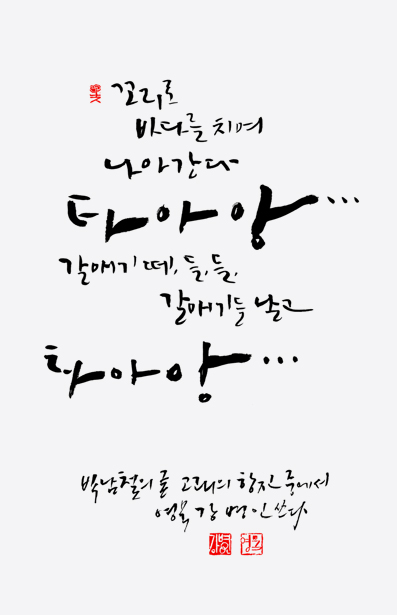 꼬리로
바다를 치며
나아간다
타아앙...
갈매기 떼, 들, 들,
갈매기들 날고
타아앙...
박남철의 글 고래의 항진 중에서
영묵 강병인 쓰다